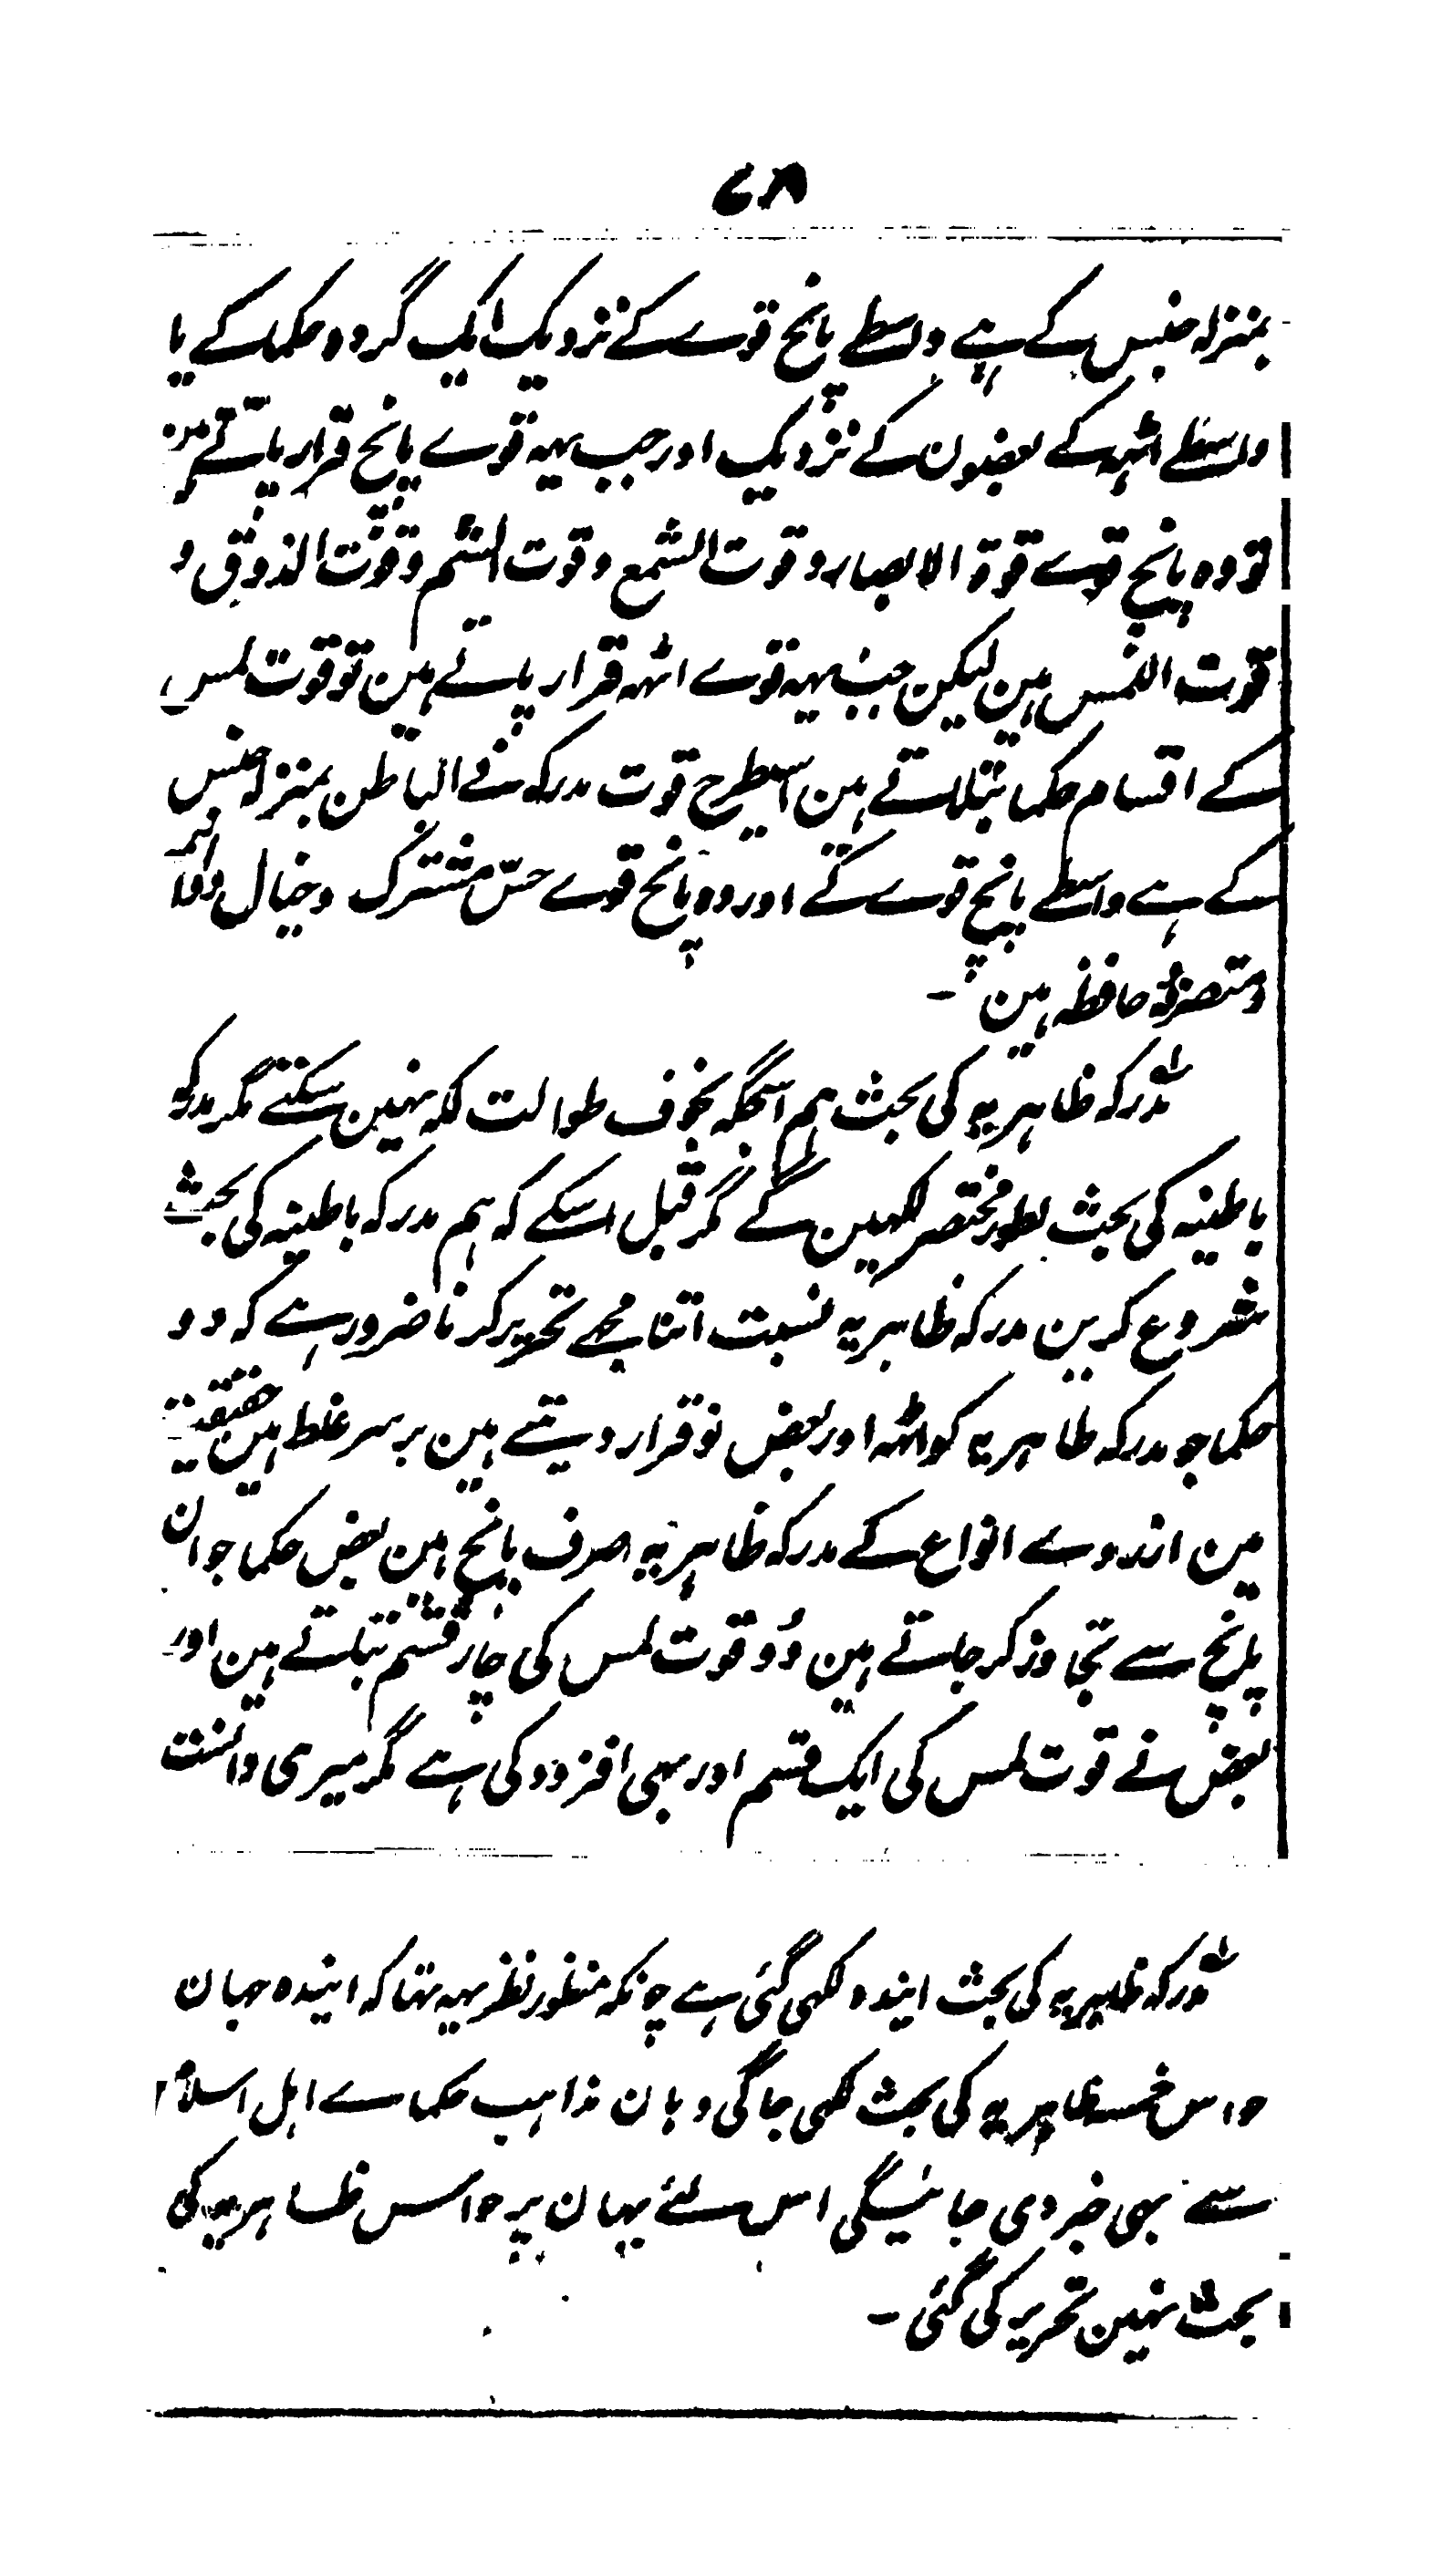 ۶۸
بمنزلہ جنس کے ہے واسطے پانچ قوے کے نزدیک ایک گروہ حکما کے یا
واسطے اٹہہ کے بعضون کے نزدیک اور جب یہہ قوے پانچ قرار پاتے ہین
تو وہ پانچ قوے قوۃ الابصار و قوت السمع و قوت الشم و قوت الذوق و
قوت اللمس ہین لیکن جب یہہ قوے اٹہہ قرار پاتے ہین تو قوت لمس
کے اقسام حکما بتلاتے ہین اسیطرح قوت مدرکہ فے الباطن بمنزلہ جنس
کے ہے واسطے پانچ قوے کے اور وہ پانچ قوے حسّ مشترک وخیال وواہمہ
ومتصرفہ حافظہ ہین ۔
مدرکہ ظاہریہ کی بحث ہم اسجگہ بخوف طوالت لکہ نہین سکتے مگر مدرکہ
باطنیہ کی بحث بطور مختصر لکہین گے مگر قبل اسکے کہ ہم مدرکہ باطنیہ کی بحث
شروع کرین مدرکہ ظاہریہ نسبت اتنا مجہے تحریر کرنا ضرور ہے کہ دو
حکما جو مدرکہ ظاہریہ کو اٹہہ اور بعض نو قرار دیتے ہین برسر غلط ہین حقیقت
مین ازروے انواع کے مدرکہ ظاہریہ صرف پانچ ہین بعض حکما جو ان
پانچ سے تجاوز کر جاتے ہین وُو قوت لمس کی چار قسم بتلاتے ہین اور
بعض نے قوت لمس کی ایک قسم اور بہی افزود کی ہے مگر میری دانست
مدرکہ ظاہریہ کی بحث ایندہ لکہی گئی ہے چونکہ منظور نظر یہہ تہا کہ ایندہ جہان
حواس خمسہ ظاہریہ کی بحث لکہی جاگی وہان مذاہب حکماے اہل اسلام
سے بہی خبر دی جائیگی اس لئے یہان پر حواس ظاہریہ کی
بحث نہین تحریر کی گئی ۔